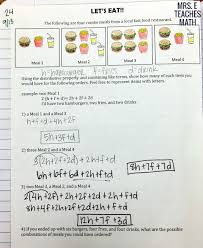 MRS. E
TEACHES
MATH
24
9/15
LET'S EAT!!
The following are four combo meals from a local fast food restaurant.
Meal 1 Meal 2 Meal 3 Meal 4
h=hamburger f=fries d=drink
Using the distributive property and combining like terms, show how many of each item you
would have for the following orders. Feel free to represent items with letters.
example: two Meal 1
2 (h + f + d) = 2h + 2f + 2d
I'd have two hamburgers, two fries, and two drinks
1) a Meal 1 and a Meal 3
h+f+d+4h+2f
5h+3f+d
2) three Meal 2 and a Meal 4
3(2h+2f+2d)+2h+f+d
6h+6f+6d+2h+f+d
8h+7f+7d
3) two Meal 3, a Meal 2, and a Meal 4
2(4h+2f)+2h+2f+2d+2h+f+d
8h+4f+2h+2f+2d+2h+f+d
12h+7f+3d
4) If you ended up with six burgers, four fries, and four drinks, what are the possible
combinations of meals you could have ordered?